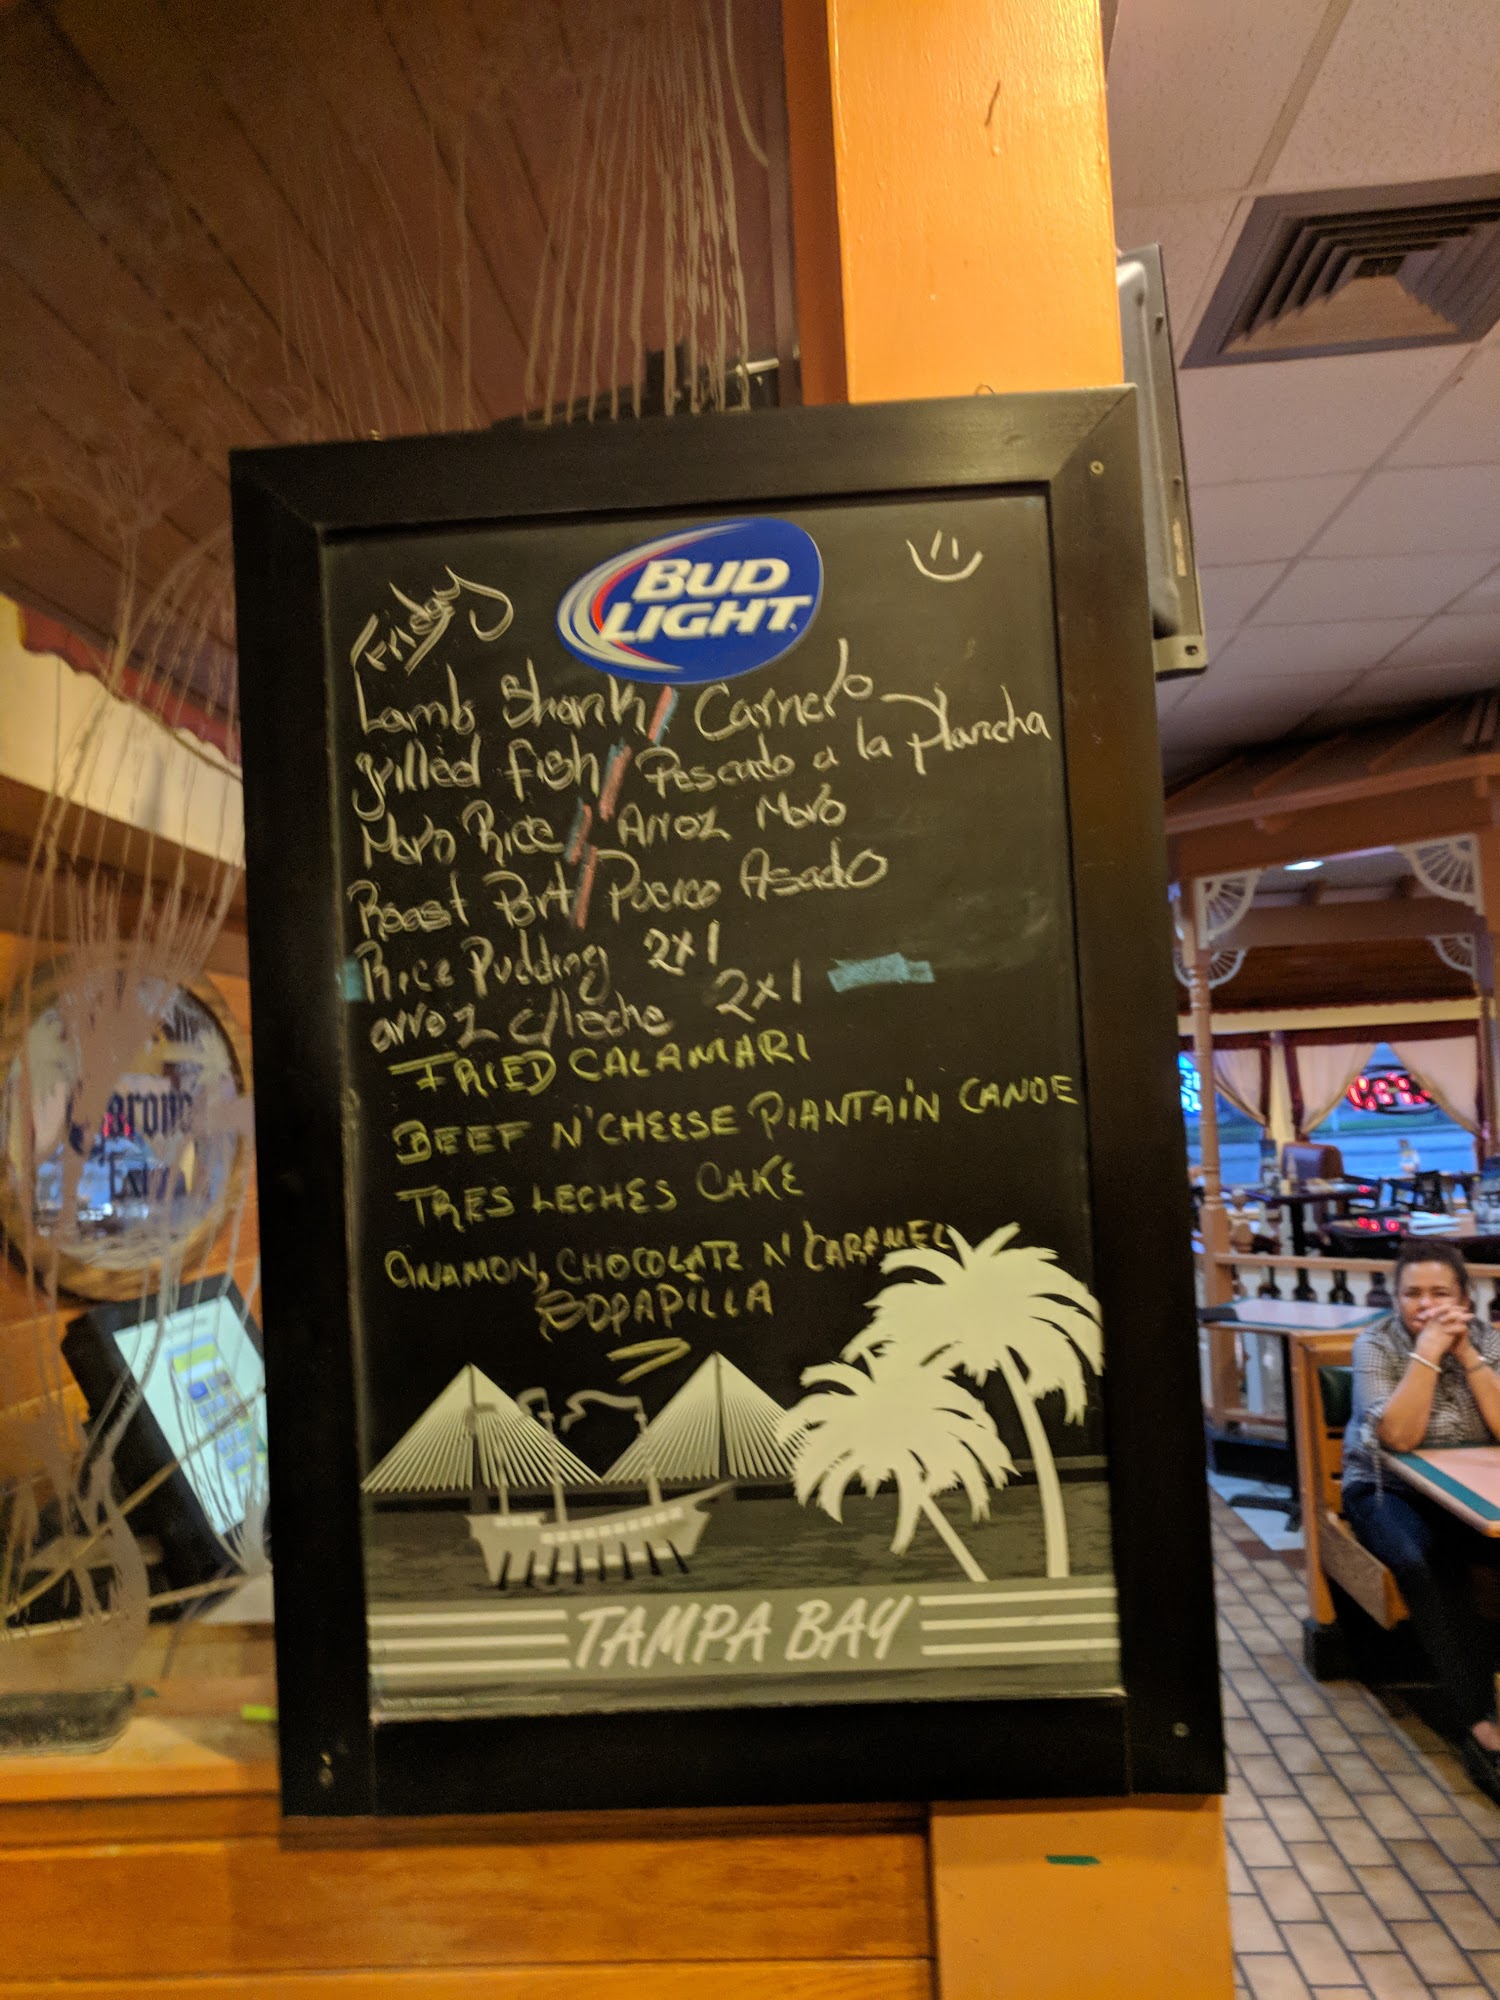 BUD
LIGHT
Friday
Lamb Shank / Carnero
grilled fish / Pescado a la plancha
Moro Rice / Arroz Moro
Roast Pork / Puerco Asado
Rice Pudding 2x1
arroz c/leche 2x1
FRIED CALAMARI
BEEF N' CHEESE PLANTAIN CANOE
TRES LECHES CAKE
CINAMON, CHOCOLATE N' CARAMEL
SOPAPILLA
TAMPA BAY